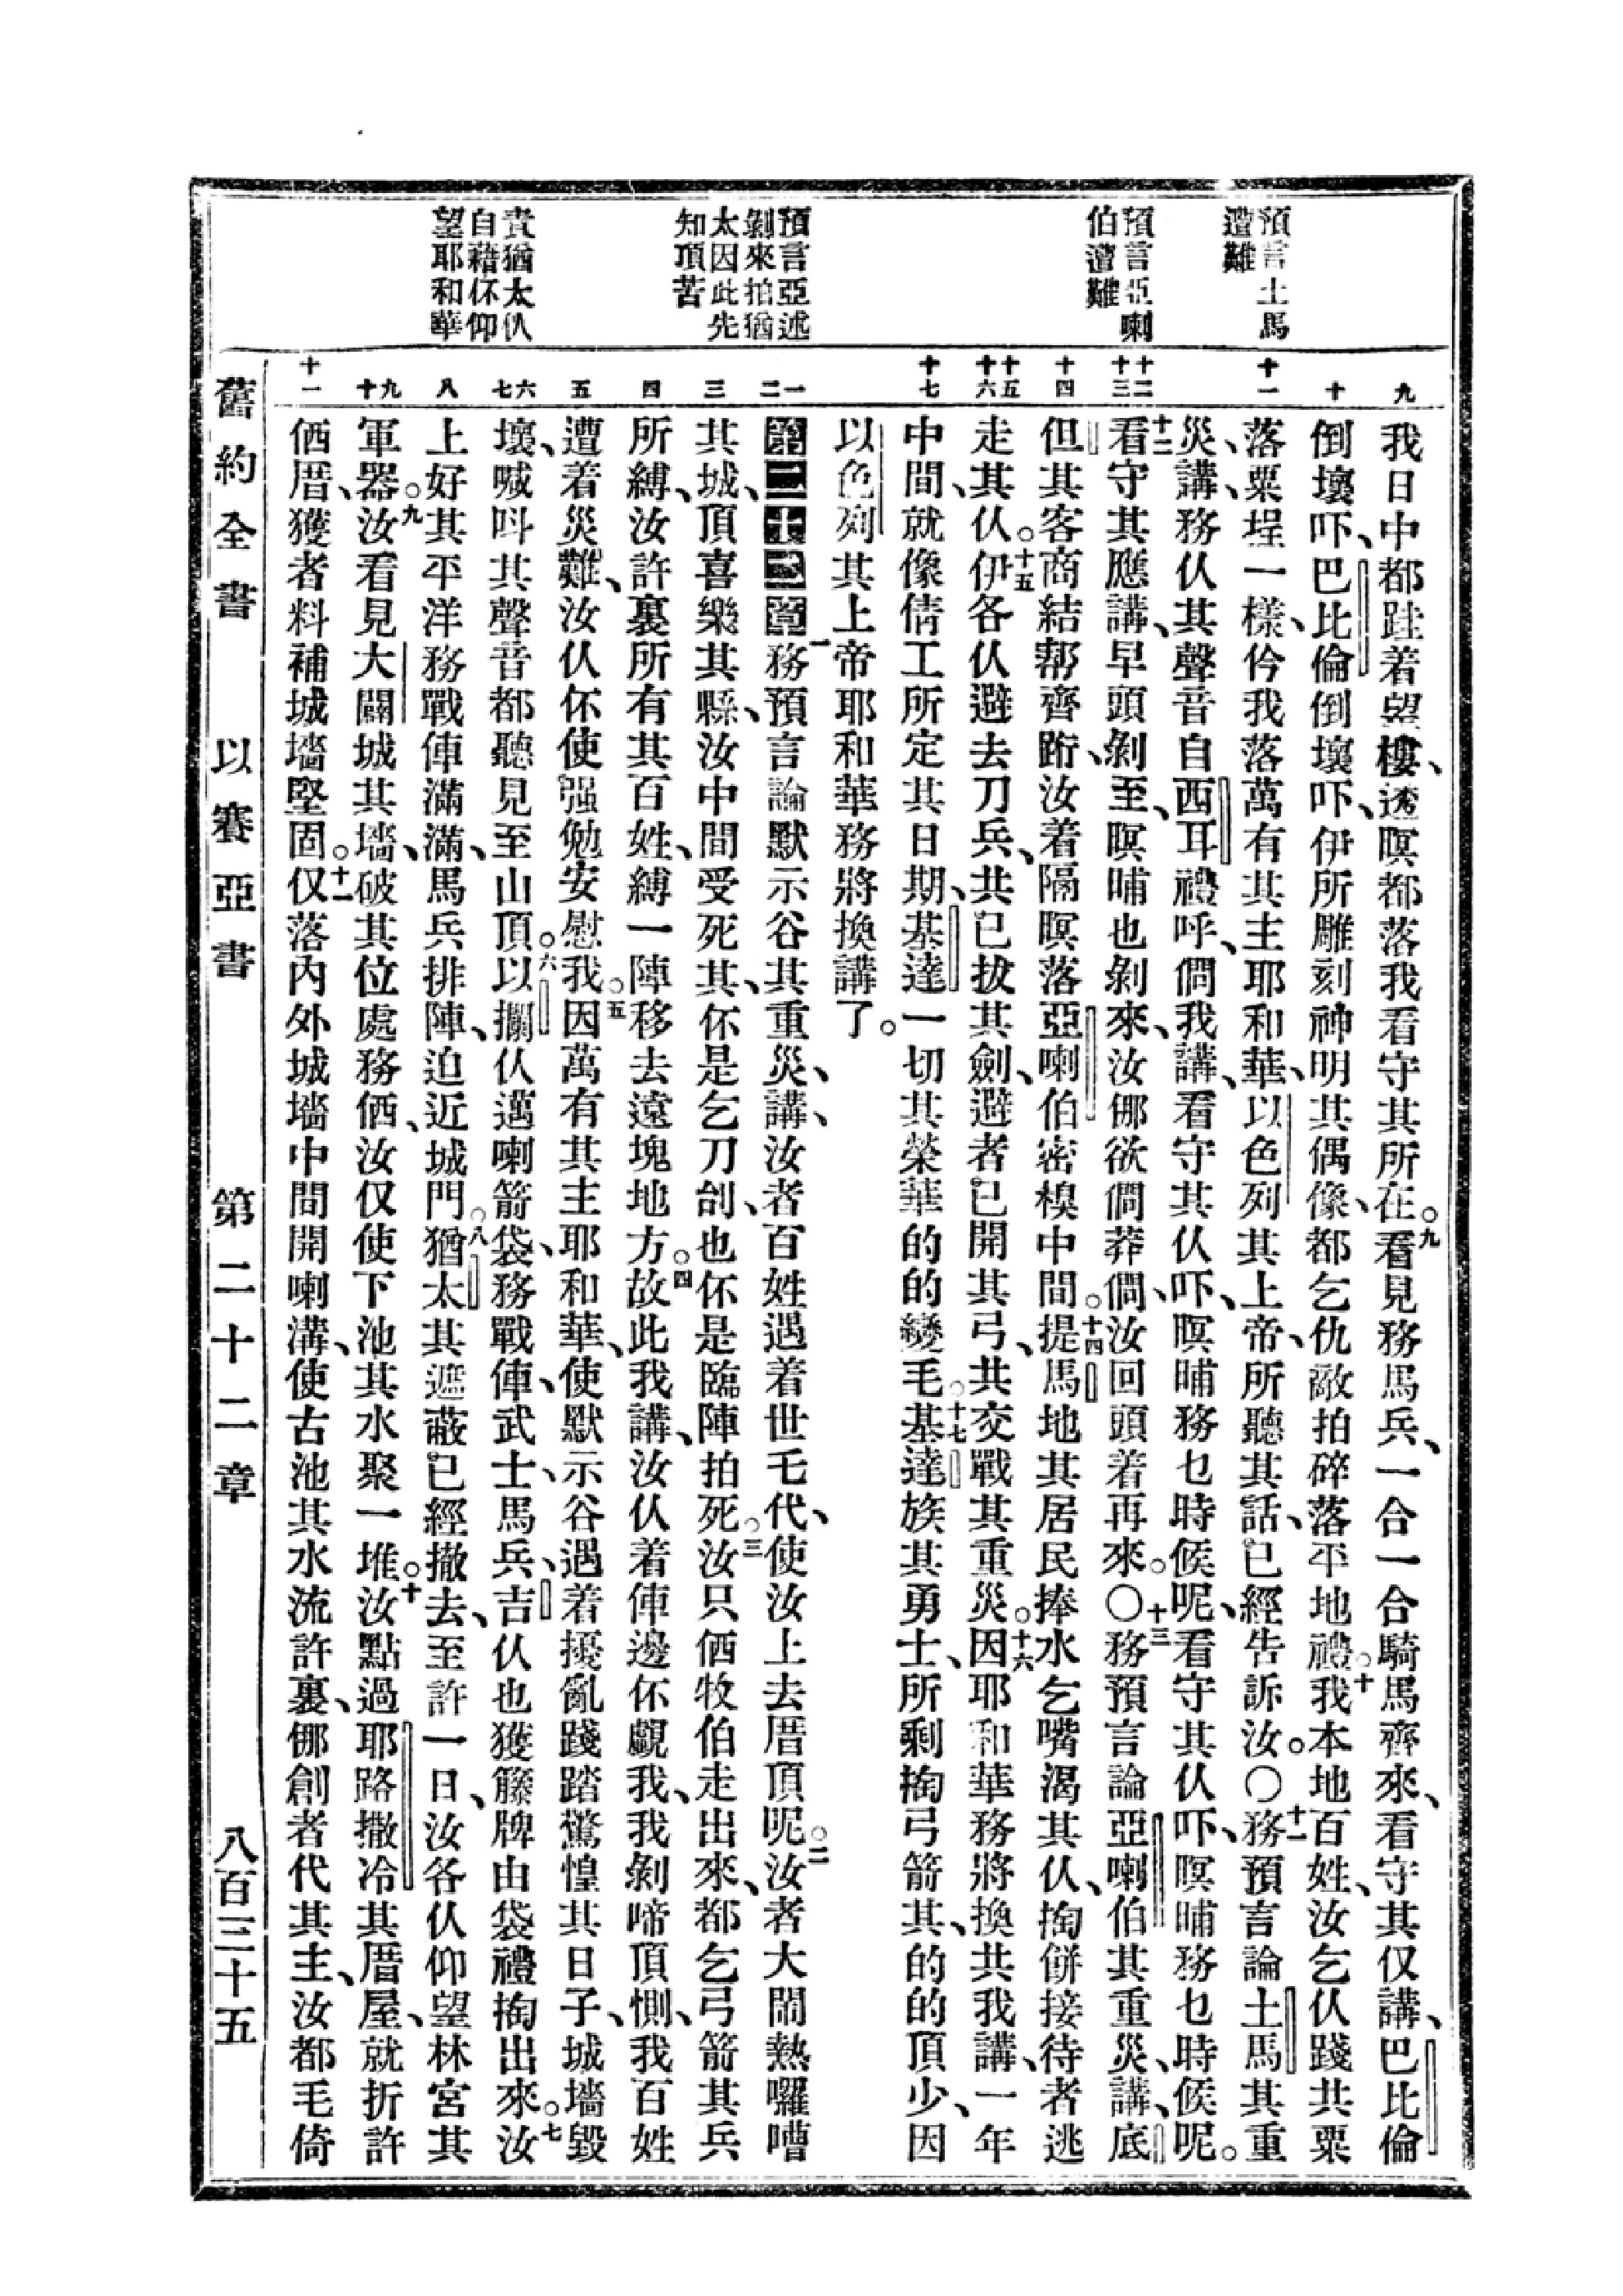 預言土馬
遭難
預言亞喇
伯遭難
預言亞述
剝來拍猶
太因此先
知頂苦
責猶太仈
自藉伓仰
望耶和華
九
十
十一
十二
十三
十四
十五
十六
十七
一
二
三
四
五
六
七
八
九
十
十一
我日中都跬着望樓、透暝都落我看守其所在。九看見務馬兵、一合一合騎馬齊來、看守其仅講、巴比倫
倒壞吓、巴比倫倒壞吓、伊所雕刻神明其偶像、都乞仇敵拍碎落平地禮。十我本地百姓、汝乞仈踐共粟
落粟埕一樣、仱我落萬有其主耶和華、以色列其上帝、所聽其話、已經告訴汝。〇十一務預言論土馬其重
災講、務仈其聲音自西耳禮呼、僩我講、看守其仈吓、暝晡務乜時候呢、看守其仈吓、暝晡務乜時候呢。
十二看守其應講、早頭剝至、暝晡也剝來、汝㑚欲僩莽僩、汝回頭着再來。〇十三務預言論亞喇伯其重災講、底
但其客商結幇齊跲、汝着隔暝落亞喇伯密模中間。十四提馬地其居民捧水乞嘴渴其仈、掏餅接待者逃
走其仈。十五伊各仈避去刀兵、共已拔其劍、避者已開其弓、共交戰其重災。十六因耶和華務將換共我講、一年
中間、就像倩工所定其日期、基達一切其榮華的的變毛。十七基達族其勇士、所剩掏弓箭其、的的頂少、因
以色列其上帝耶和華務將換講了。
第二十二章一務預言論默示谷其重災、講、汝者百姓遇着世乇代、使汝上去厝頂呢。二汝者大鬧熱囉嘈
其城、頂喜樂其縣、汝中間受死其、伓是乞刀刣、也伓是臨陣拍死。三汝只㑚牧伯走出來、都乞弓箭其兵
所縛、汝許裏所有其百姓、縛一陣移去遠塊地方。四故此我講、汝仈着俥邊伓覷我、我剝啼頂惻、我百姓
遭着災難、汝仈伓使强勉安慰我。五因萬有其主耶和華、使默示谷遇着擾亂踐踏驚惶其日子、城墻毀
壞、喊呌其聲音都聽見至山頂。六以攔仈邁喇箭袋、務戰俥、武士、馬兵、吉仈也獲籐牌由袋禮掏出來。七汝
上好其平洋務戰俥滿滿、馬兵排陣、迫近城門。八猶太其遮蔽已經撤去、至許一日、汝各仈仰望林宮其
軍器。九汝看見大闢城其墻、破其位處務㑚、汝仅使下池其水聚一堆。十汝點過耶路撒冷其厝屋、就折許
㑚厝、獲者料補城墻堅固。十一仅落內外城墻中間開喇溝、使古池其水流許裏、㑚創者代其主、汝都毛倚
舊約全書 以賽亞書 第二十二章 八百三十五